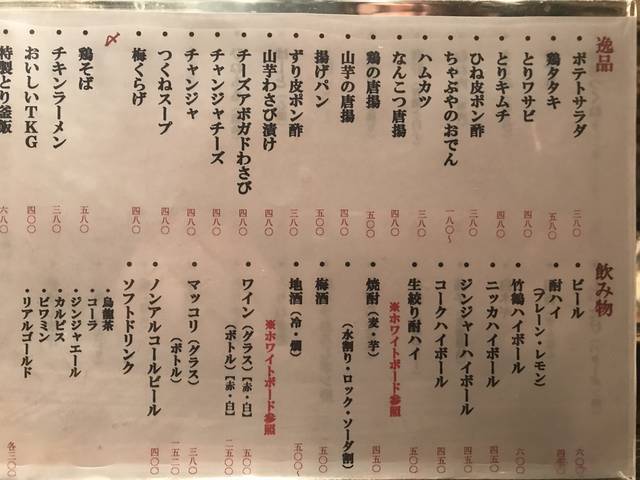 逸品
・ポテトサラダ 三八〇
・鶏タタキ 五八〇
・とりワサビ 四八〇
・とりキムチ 四八〇
・ひね皮ポン酢 三八〇
・ちゃぶやのおでん 一八〇〜
・ハムカツ 三八〇
・なんこつ唐揚 四八〇
・鶏の唐揚 五〇〇
・山芋の唐揚 四八〇
・揚げパン 五〇〇
・ずり皮ポン酢 三八〇
・山芋わさび漬け 四八〇
・チーズアボガドわさび 四八〇
・チャンジャチーズ 四八〇
・チャンジャ 四八〇
・つくねスープ 四八〇
・梅くらげ 四八〇
〆
・鶏そば 五八〇
・チキンラーメン 三八〇
・おいしいTKG 四〇〇
・特製とり釜飯 六八〇
飲み物
・ビール 六〇〇
・酎ハイ 四五〇
(プレーン・レモン)
・竹鶴ハイボール 六〇〇
・ニッカハイボール 四五〇
・ジンジャーハイボール 四五〇
・コークハイボール 四五〇
・生絞り酎ハイ
※ホワイトボード参照
・焼酎(麦・芋) 四五〇
(水割り・ロック・ソーダ割)
・梅酒 四五〇
・地酒(冷・燗) 五〇〇〜
※ホワイトボード参照
・ワイン(グラス)[赤・白] 五〇〇
(ボトル)[赤・白] 二五〇〇
・マッコリ(グラス) 三八〇
(ボトル) 一五二〇
・ノンアルコールビール 四〇〇
・ソフトドリンク
・烏龍茶
・コーラ
・ジンジャエール
・カルピス
・ビワミン
・リアルゴールド
各三〇〇